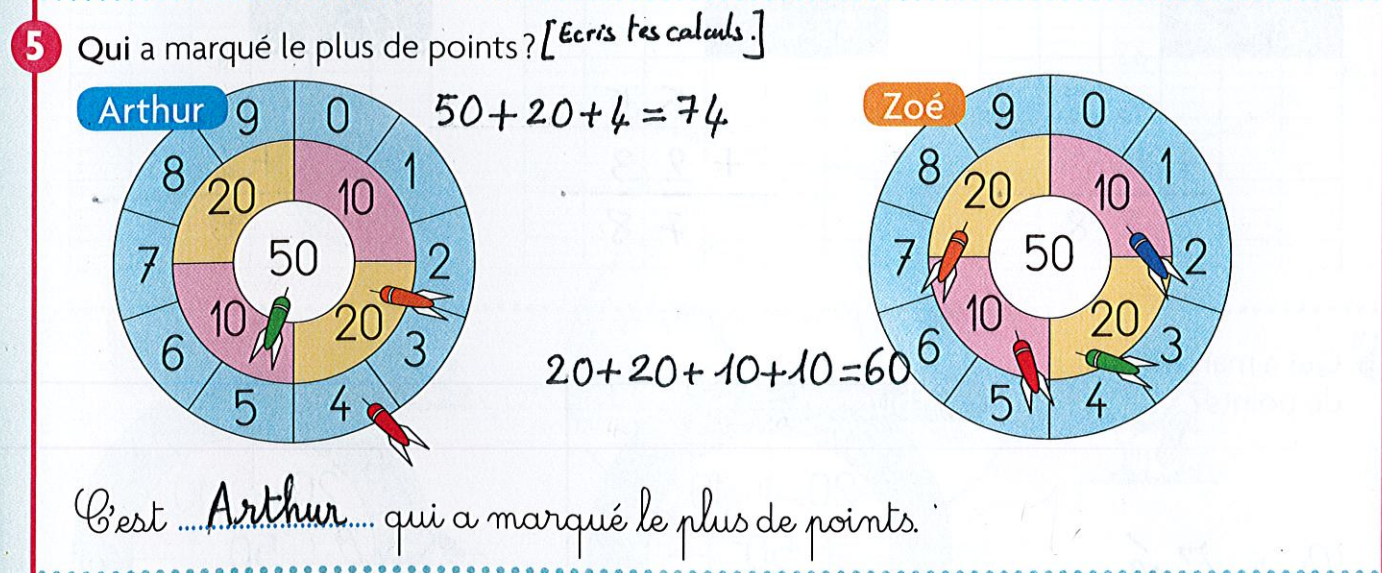 5 Qui a marqué le plus de points ? [Ecris tes calculs.]
Arthur
9 0
8 20 10 1
7 50 2
6 10 20 3
5 4
50+20+4=74
Zoé
9 0
8 20 10 1
7 50 2
6 10 20 3
5 4
20+20+10+10=60
C'est Arthur qui a marqué le plus de points.